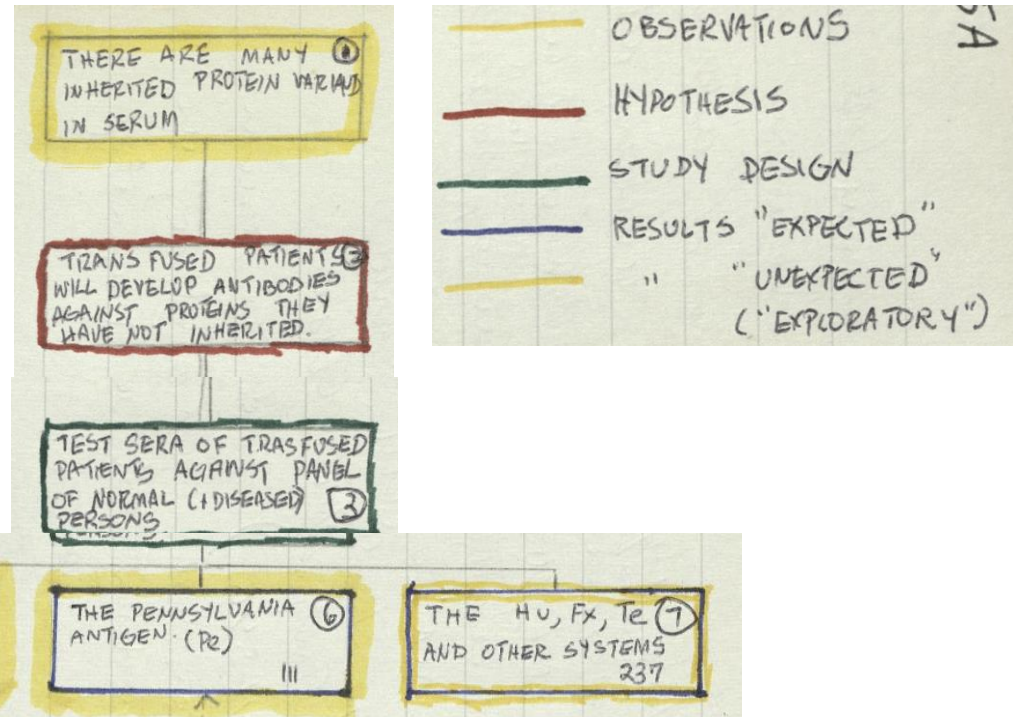 THERE ARE MANY 1
INHERITED PROTEIN VARIAND
IN SERUM
TRANSFUSED PATIENTS 2
WILL DEVELOP ANTIBODIES
AGAINST PROTEINS THEY
HAVE NOT INHERITED.
TEST SERA OF TRASFUSED
PATIENTS AGAINST PANEL
OF NORMAL (+DISEASED) 3
PERSONS
THE PENNSYLVANIA 6
ANTIGEN. (Pa)
111
THE Hu, Fx, Te 7
AND OTHER SYSTEMS
237
OBSERVATIONS
HYPOTHESIS
STUDY DESIGN
RESULTS "EXPECTED"
" "UNEXPECTED"
("EXPLORATORY")
5A